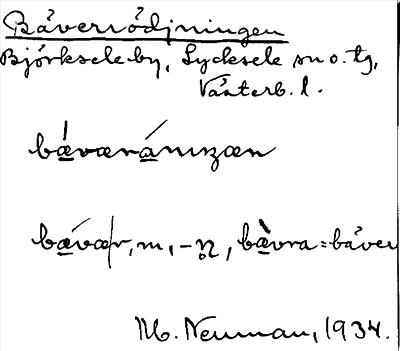 Bäverrödjningen
Björksele by, Lycksele sn o. tg,
Västerb. l.
bæværa
bævær, m, -n̥, bævra = bäver
M. Neuman, 1934.